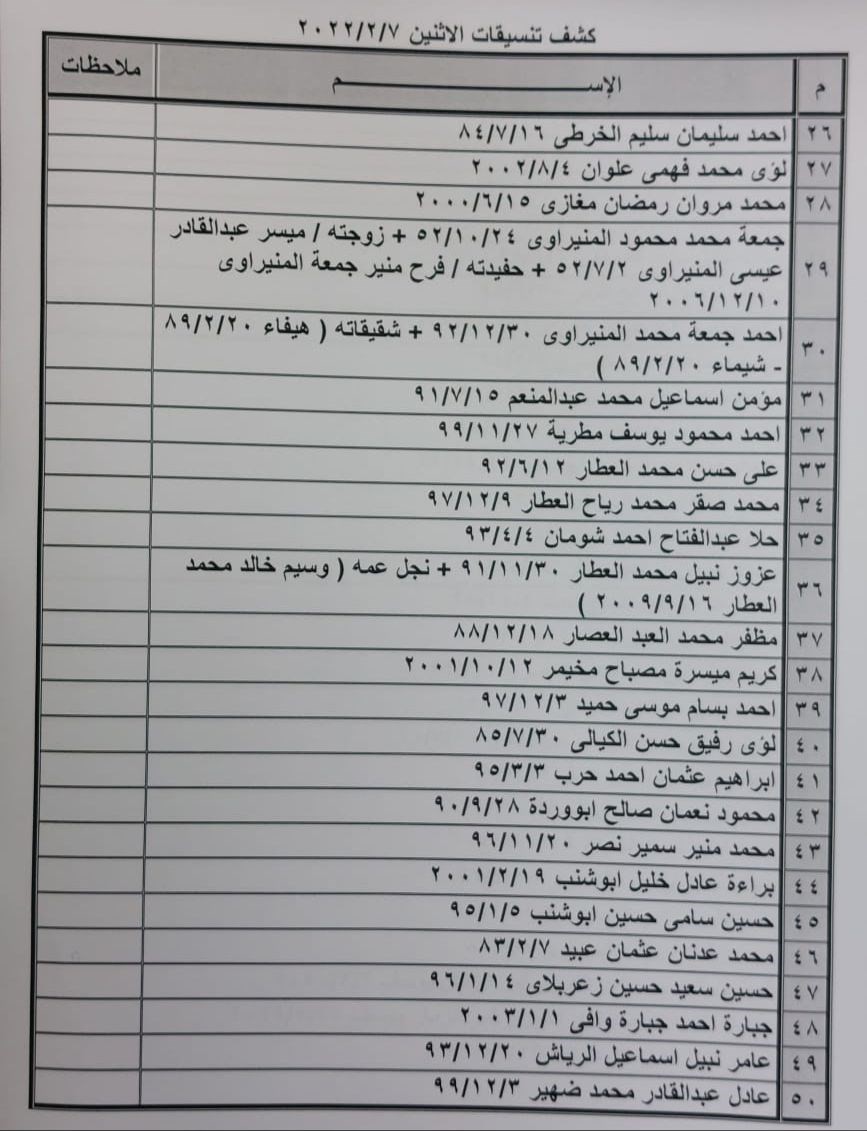 كشف تنسيقات الاثنين ٢٠٢٢/٢/٧
م الإســـــــــم ملاحظات
٢٦ احمد سليمان سليم الخرطى ٨٤/٧/١٦
٢٧ لؤى محمد فهمى علوان ٢٠٠٢/٨/٤
٢٨ محمد مروان رمضان مغازى ٢٠٠٠/٦/١٥
٢٩ جمعة محمد محمود المنيراوى ٥٢/١٠/٢٤ + زوجته / ميسر عبدالقادر
عيسى المنيراوى ٥٢/٧/٢ + حفيدته / فرح منير جمعة المنيراوى
٢٠٠٦/١٢/١٠
٣٠ احمد جمعة محمد المنيراوى ٩٢/١٢/٣٠ + شقيقاته ( هيفاء ٨٩/٢/٢٠
- شيماء ٨٩/٢/٢٠ )
٣١ مؤمن اسماعيل محمد عبدالمنعم ٩١/٧/١٥
٣٢ احمد محمود يوسف مطرية ٩٩/١١/٢٧
٣٣ على حسن محمد العطار ٩٢/٦/١٢
٣٤ محمد صقر محمد رياح العطار ٩٧/١٢/٩
٣٥ حلا عبدالفتاح احمد شومان ٩٣/٤/٤
٣٦ عزوز نبيل محمد العطار ٩١/١١/٣٠ + نجل عمه ( وسيم خالد محمد
العطار ٢٠٠٩/٩/١٦ )
٣٧ مظفر محمد العبد العصار ٨٨/١٢/١٨
٣٨ كريم ميسرة مصباح مخيمر ٢٠٠١/١٠/١٢
٣٩ احمد بسام موسى حميد ٩٧/١٢/٣
٤٠ لؤى رفيق حسن الكيالى ٨٥/٧/٣٠
٤١ ابراهيم عثمان احمد حرب ٩٥/٣/٣
٤٢ محمود نعمان صالح ابووردة ٩٠/٩/٢٨
٤٣ محمد منير سمير نصر ٩٦/١١/٢٠
٤٤ براءة عادل خليل ابوشنب ٢٠٠١/٢/١٩
٤٥ حسين سامى حسين ابوشنب ٩٥/١/٥
٤٦ محمد عدنان عثمان عبيد ٨٣/٢/٧
٤٧ حسين سعيد حسين زعربلاى ٩٦/١/١٤
٤٨ جبارة احمد جبارة وافى ٢٠٠٣/١/١
٤٩ عامر نبيل اسماعيل الرياش ٩٣/١٢/٢٠
٥٠ عادل عبدالقادر محمد ضهير ٩٩/١٢/٣